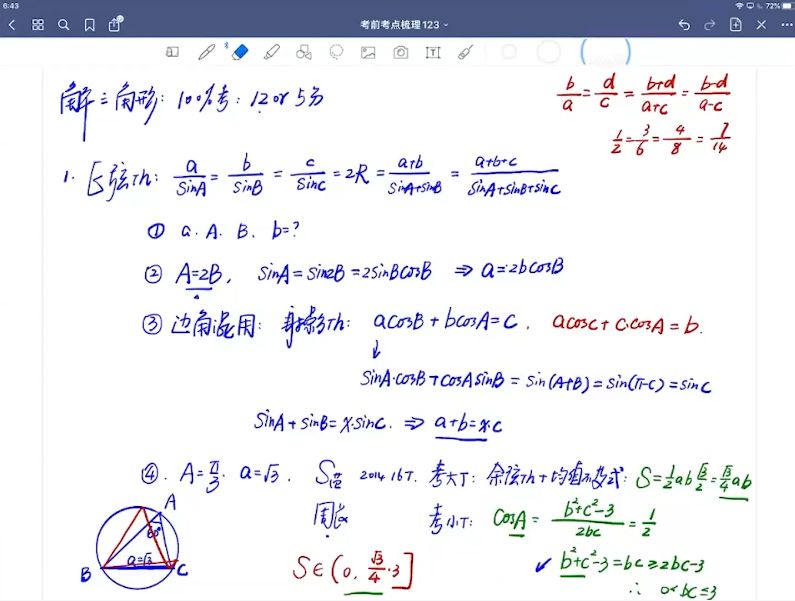 6:43
72%
考前考点梳理123
解三角形: 100%考: 12 or 5分
b/a = d/c = b+d/a+c = b-d/a-c
1/2 = 3/6 = 4/8 = 7/14
1. 正弦Th: a/sinA = b/sinB = c/sinC = 2R = a+b/sinA+sinB = a+b+c/sinA+sinB+sinC
① a. A. B. b=?
② A=2B, sinA=sin2B=2sinBcosB ⇒ a=2bcosB
③ 边角混用: 射影Th: acosB+bcosA=c. acosC+c.cosA=b.
↓
sinA·cosB+cosAsinB = sin(A+B) = sin(π-C) = sinC
sinA+sinB=x·sinC. ⇒ a+b=x·c
④. A=π/3. a=√3. S范 2014 16T. 考大T: 余弦Th+均值不等式: S=1/2ab√3/2=√3/4ab
周长 考小T: cosA = b²+c²-3/2bc = 1/2
A
60°
a=√3
B
C
S∈(0, √3/4·3]
✓ b²+c²-3=bc≥2bc-3
∴ 0<bc≤3